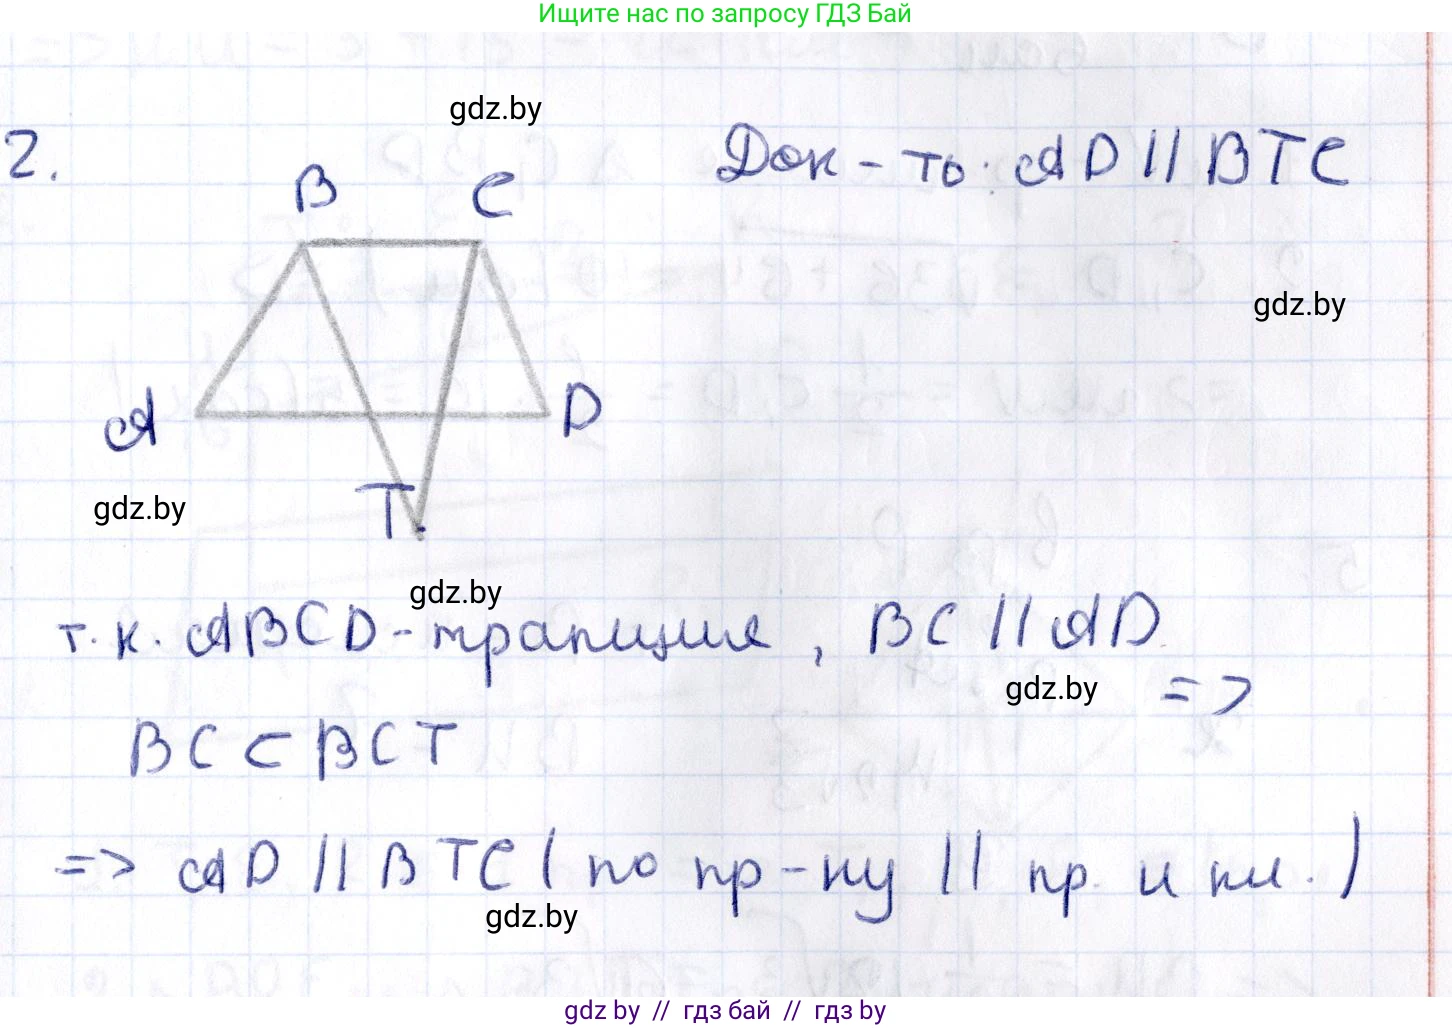 Ищите нас по запросу ГДЗ Бай
gdz.by
2.
Док-ть: AD || BTC
B C
gdz.by
A D
gdz.by
T
gdz.by
т.к. ABCD - трапиция, BC || AD
gdz.by =>
BC ⊂ BCT
=> AD || BTC (по пр-ку || пр. и пл.)
gdz.by
gdz by // гдз бай // гдз by